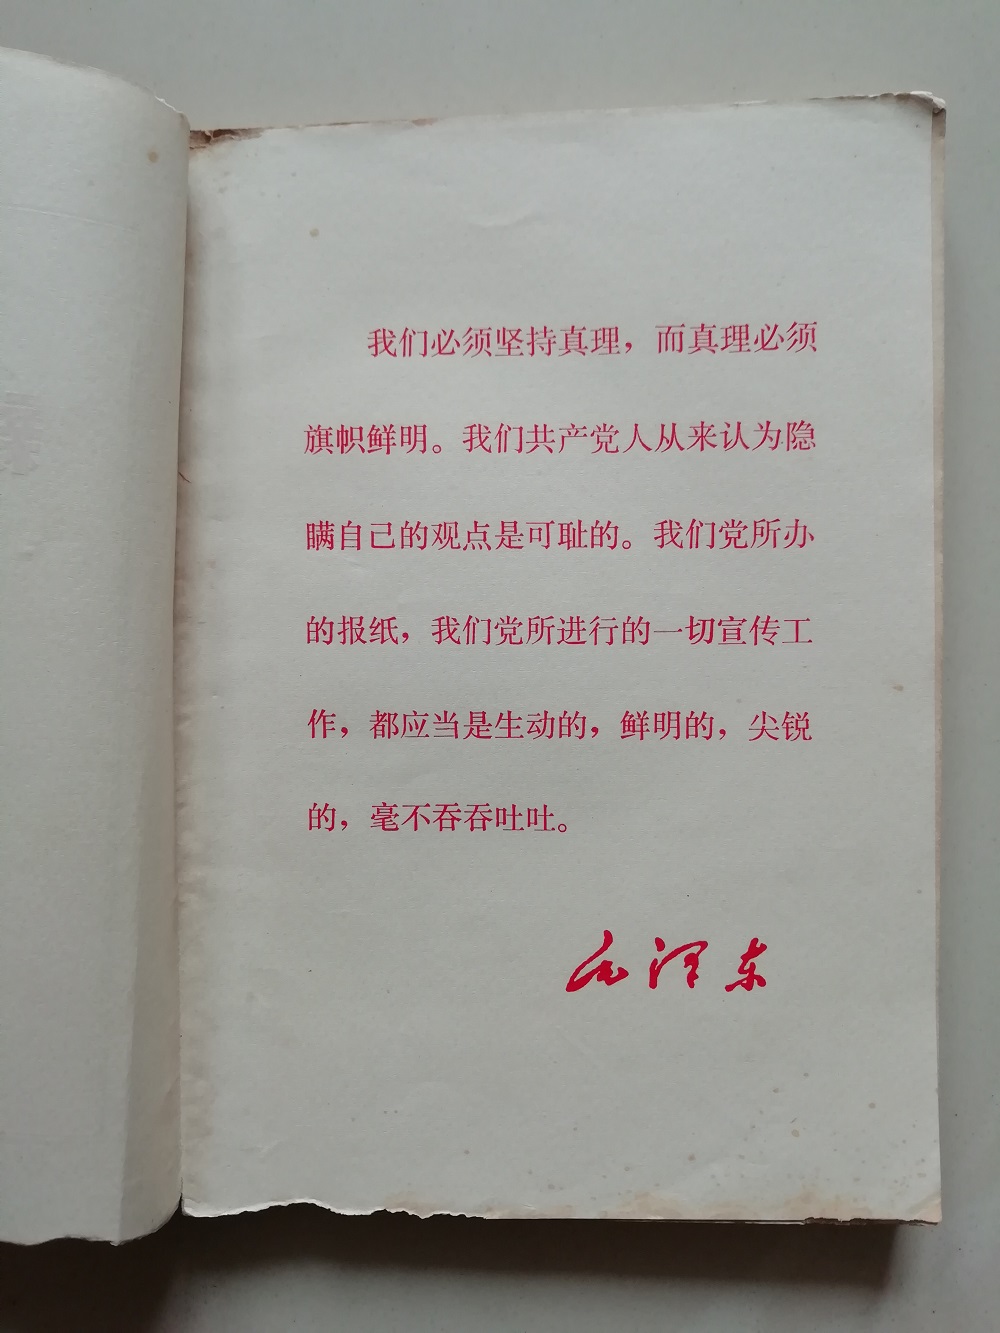 我们必须坚持真理，而真理必须
旗帜鲜明。我们共产党人从来认为隐
瞒自己的观点是可耻的。我们党所办
的报纸，我们党所进行的一切宣传工
作，都应当是生动的，鲜明的，尖锐
的，毫不吞吞吐吐。
毛泽东